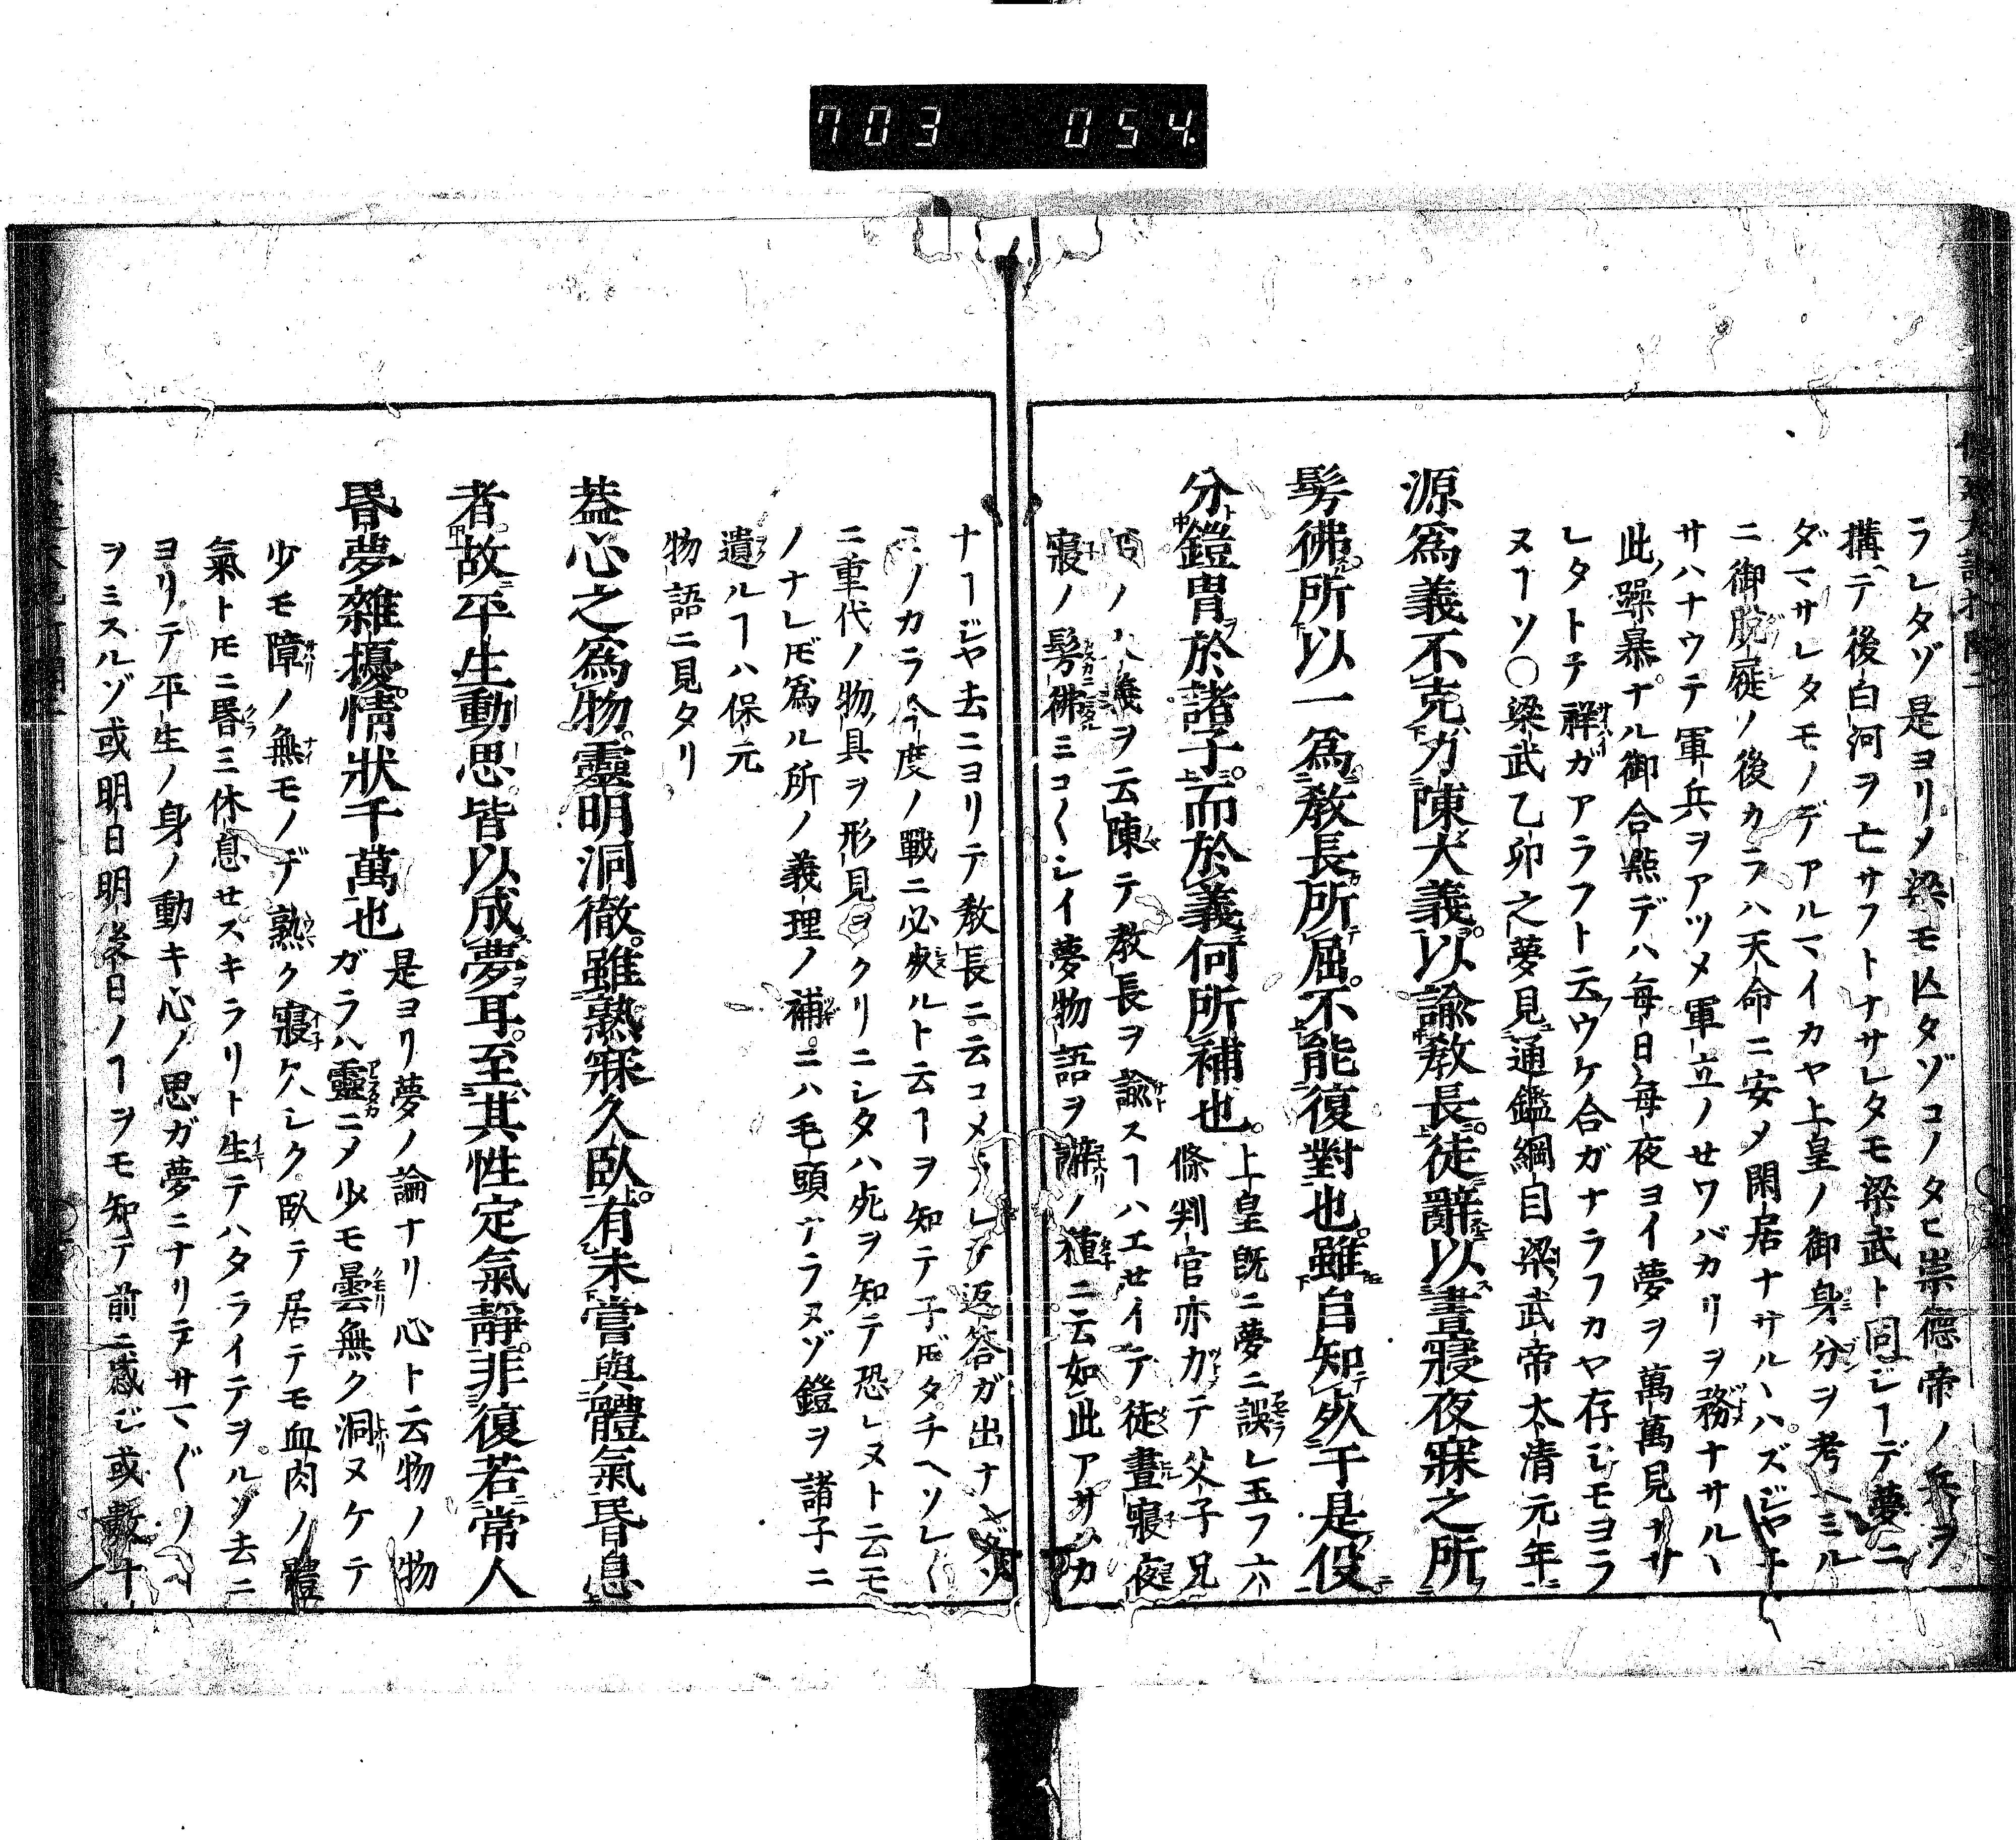 703 054
ラレタゾ是ヨリメ梁モ亾タゾコノタヒ崇德帝ノ兵ヲ
搆テ後白河ヲ亡サフトナサレタモ梁武ト同ジヿデ夢ニ
ダマサレタモノデアルマイカヤ上皇ノ御身分ヲ考ヘミル
ニ御脫屣ノ後カラハ天命ニ安メ閑居ナサルヽハズジヤ
サハナウテ軍兵ヲアツメ軍立ノセワバカリヲ務ナサルヽ
此躁暴ナル御合點デハ每日每夜ヨイ夢ヲ萬萬見ナサ
レタトテ祥ガアラフト云ウケ合ガナラフカヤ存ジモヨラ
ヌヿソ〇梁武乙卯之夢見通鑑綱目梁武帝太清元年
源爲義不克力陳大義以諭敎長徒辭以晝寢夜寐之所
髣彿所以一爲敎長所屈不能復對也雖自知必于是役
分鎧冑於諸子而於義何所補也
上皇旣ニ夢ニ誤レ玉フ六
條判官亦ガテ父子兄
ノ大義ヲ云陳テ敎長ヲ諭スヿハエセイデ徒晝寢夜
寢ノ髣彿ミコ〱シイ夢物語ヲ辭ノ種ニ云如此アサ
ナヿジヤ去ニヨリテ敎長ニ云コメラレテ返答ガ出ナンダゾ
ノカラ今度ノ戰ニ必死ルト云ヿヲ知テ子ドモタチヘソレ〱
ニ重代ノ物具ヲ形見ヲクリニシタハ死ヲ知テ恐レヌト云モ
ノナレドモ爲ル所ノ義理ノ補ニハ毛頭アラヌゾ鎧ヲ諸子ニ
遺ルヿハ保元
物語ニ見タリ
蓋心之爲物靈明洞徹雖熟寐久臥有未嘗與體氣昬息
者故平生動思皆以成夢耳至其性定氣靜非復若常人
昬夢雜擾情狀千萬也
是ヨリ夢ノ論ナリ心ト云物ノ物
ガラハ靈ニメ少モ曇無ク洞ヌケテ
少モ障ノ無モノデ熟ク寢久シク臥テ居テモ血肉ノ體
氣トモニ昬ミ休息セスキラリト生テハタライテヲルゾ去ニ
ヨリテ平生ノ身ノ動キ心ノ思ガ夢ニナリテサマ〲ノ
ヲミスルゾ或明日明後日ノヿヲモ知テ前ニ感ジ或數十